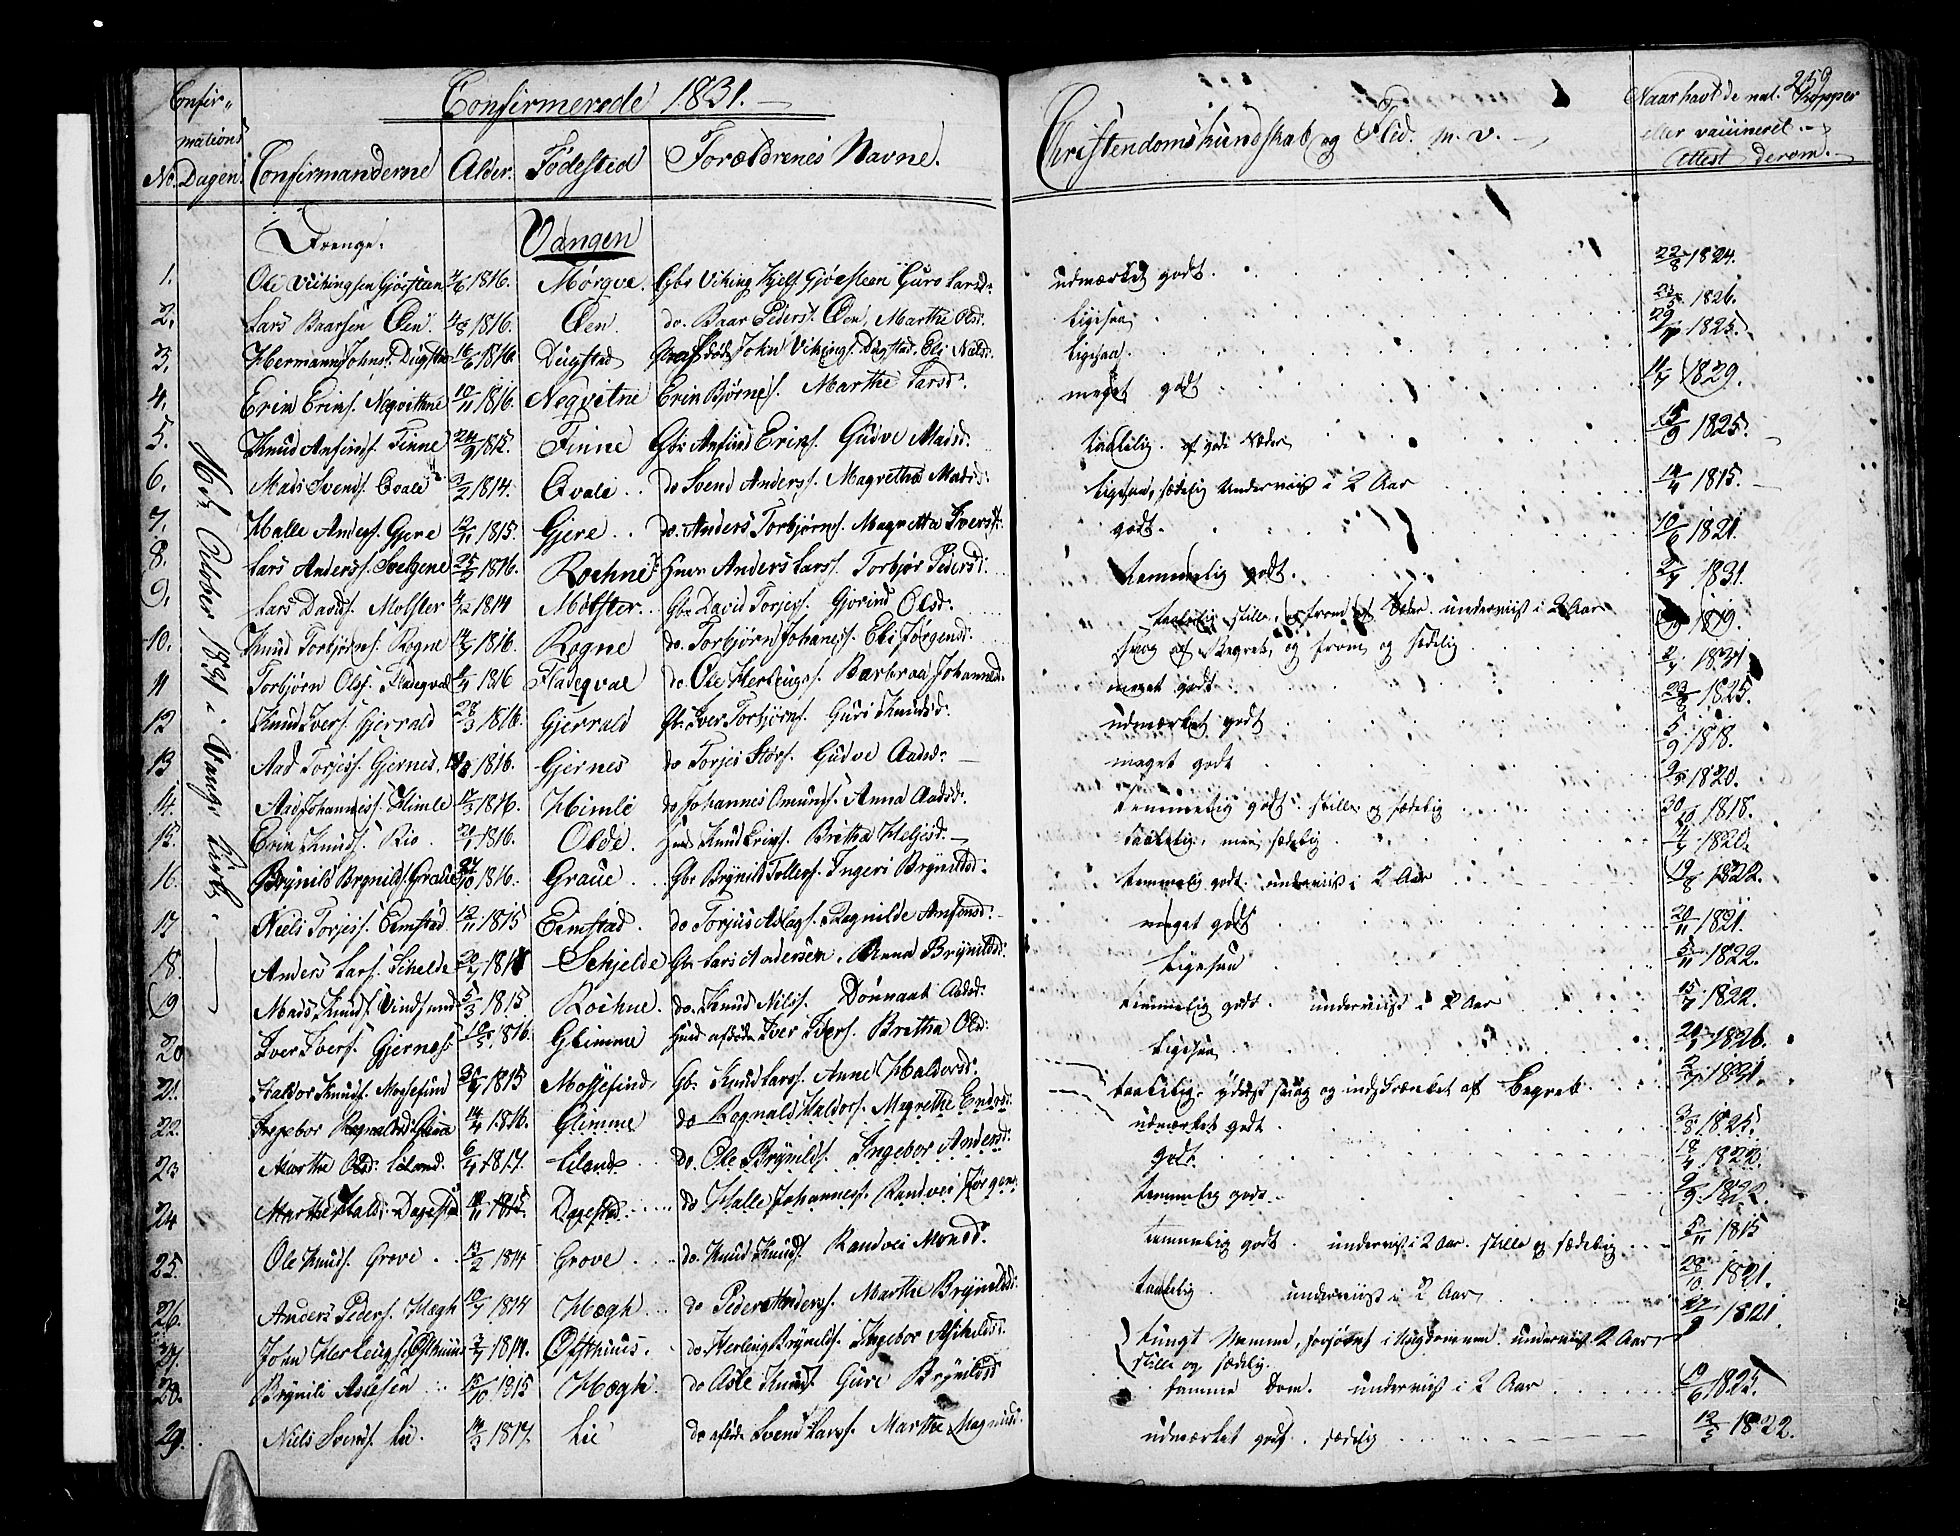 Confirmerede 1831.
Confir-
mations
No. Dagen. Confirmanderne Alder. Fødested Forældrenes Navne.
Christendomskundskab og Flid. m. v.
259
Naar havt de nat. Kopper
eller vaccineret.
Attest derom.
16de October 1831 i Vangs Kirke
Drenge. Vangen
1. Ole Vikingsen Gjøsteen 1816. Mørqve. Gbr Viking Gjøesteen Guro Larsd: udmærket godt. 22/8 1824.
2. Lars Baarsen Øen. 4/8 1816. Øen. do. Baar Peders. Øen, Marthe Olsd. ligesaa 1826.
3. Hermann Johns. Dugstad 16/6 1816. Dugstad John Vikings. Dugstad, Eli Nilsd. ligesaa. 1825.
4. Erik Eriks. Neqvitne 10/11 1816. Neqvitne Erik Bjørns. Marthe Larsd. meget godt 11/7 1829.
5. Knud Anfinds. Finne 24/9 1815. Finne Gbr Anfind Eriks. Gudve Madsd. taalelig. af gode Sæder 15/9 1825.
6. Mads Svends. Qvale 3/2 1814. Qvale do Svend Anders. Magretha Madsd: ligesaa, sædelig Underviist i 2 Aar 14/4 1815.
7. Halle Anders. Gjere 12/11 1815. Gjere do. Anders Torbjørns. Magretta Iversd: godt. 10/6 1821.
8. Lars Anderss. 25/3 1816. Rochne Anders Larss. Torbjør Pedersd: temmelig godt. 2/7 1831.
9. Lars Davids. Mølster 4/12 1814 Mølster. Gbr David Torjess. Gjorind Olsd: taalelig stille, og from underviist i 2 Aar 1819.
10. Knud Torbjørns. Rogne 14/7 1816. Rogne do. Torbjørn Johaness. Eli Jørgensd: svag af Begreb, og from og sædelig 2/7 1831
11 Torbjørn Ols. Fladeqval 1816 Fladeqval do Ole Herleugs. Barbraa Johannesd: meget godt 1825.
12 Knud Ivers. Gjerrald 28/3 1816. Gjerrald Gbr Iver Torbjørns. Guri Knudsd: udmærket godt 5/9 1818.
13. Aad Torjess. Gjernes, 1816. Gjernes do Torjes Gudve Aadsd: meget godt 1820.
14. Aad Johanness. Himle 17/3 1816. Himle do Johannes Amunds. Anna Aadsd: temmelig godt. stille og sædelig 30/10 1818.
15. Erik Knuds. Rio 1816. Olde. Knud Eriks. Bretha Heljesd. taalelig, men sædelig 1820.
16. Brynild Brynilds. Graue 27/10 1816. Graue Gbr Brynild Tollefs. Ingeri Brynildsd: temmelig godt. underviist i 2 Aar 19/8 1822.
17 Niels Torjess. Eimstad 12/11 1815 Eimstad. do Torjus Aslags. Ragnilde Amfinsd: meget godt 20/11 1821.
18. Anders Lars. Schelde Schjelde Gbr Lars Andersen, Anna Brynildsd: ligesaa 5/11 1822.
19 Mads Knuds. 5/3 1815. Rochne. do. Knud Nils. Aadsd: temmelig godt. underviist i 2 Aar 15/7 1822.
20 Iver Ivers. Gjernes 10/5 1816. Glimme afdøde Iver Ivers. Bretha Olsd: ligesaa 1826.
21. Haldor Knuds. Møsefind 1815 Mossefind, Gb. Knud Larss. Anne Haldorsd: taalelig. yderst svag og indskrænket af Begreb. 1831.
22. Ingebor Rognaldsd: Glimme 14/4 1816. Glimme do Rognald Haldors. Magrethe Endresd: udmærket godt. 3/8 1825.
23 Marthe Olsd: Liland. 6/4 1817. Liland do. Ole Brynilds. Ingebor Andersd: godt. 18/4 1822.
24 Marthe Dagestad 1815. Dagestad do Halle Johanness. Randvei Jørgens: temmelig godt. 1822.
25. Ole Knuds. Grove 13/2 1814 Grove do. Knud Knuds. Randvei Monsd: temmelig godt. underviist i 2 Aar. stille og sædelig 5/11 1815
26. Anders Peders. Hægh 10/7 1814 Hægh do Peder Anders. Marthe Brynildsd: taalelig underviist i 2 Aar 28/10 1821.
27. John Herleugs. Østhuus 3/7 1814. Østhuus. do. Herleug Brynilds. Ingebor tungt Nemme, forsømt i Ungdommen underviist 2 Aar 1821.
stille og sædelig.
28. Brynild Aslesen 15/10 1815 Hægh. do Asle Knuds. Guri Brynildsd samme Dom. underviist i 2 Aar 19/6 1825.
29. Niels Svends. Lie. 14/3 1817. Lie do afdøde Svend Larss. Marthe Magnusd: udmærket godt. sædelig 1822.